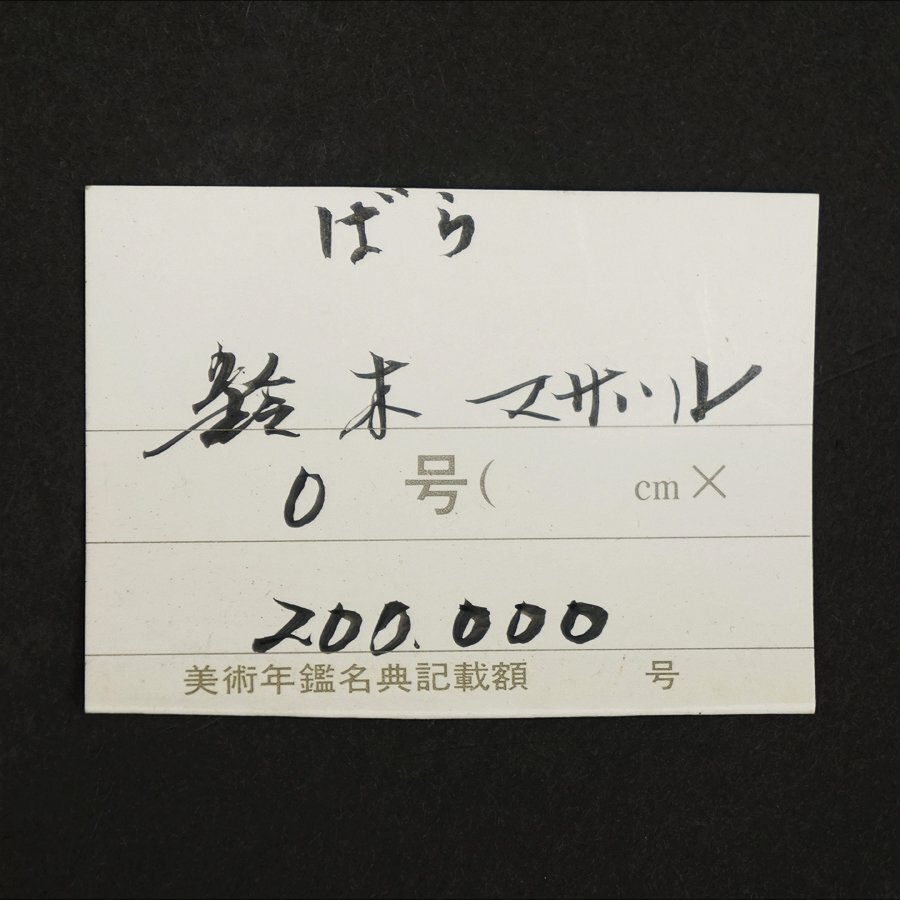 ばら
鈴木 マサハル
0 号( cm×
200.000
美術年鑑名典記載額 号